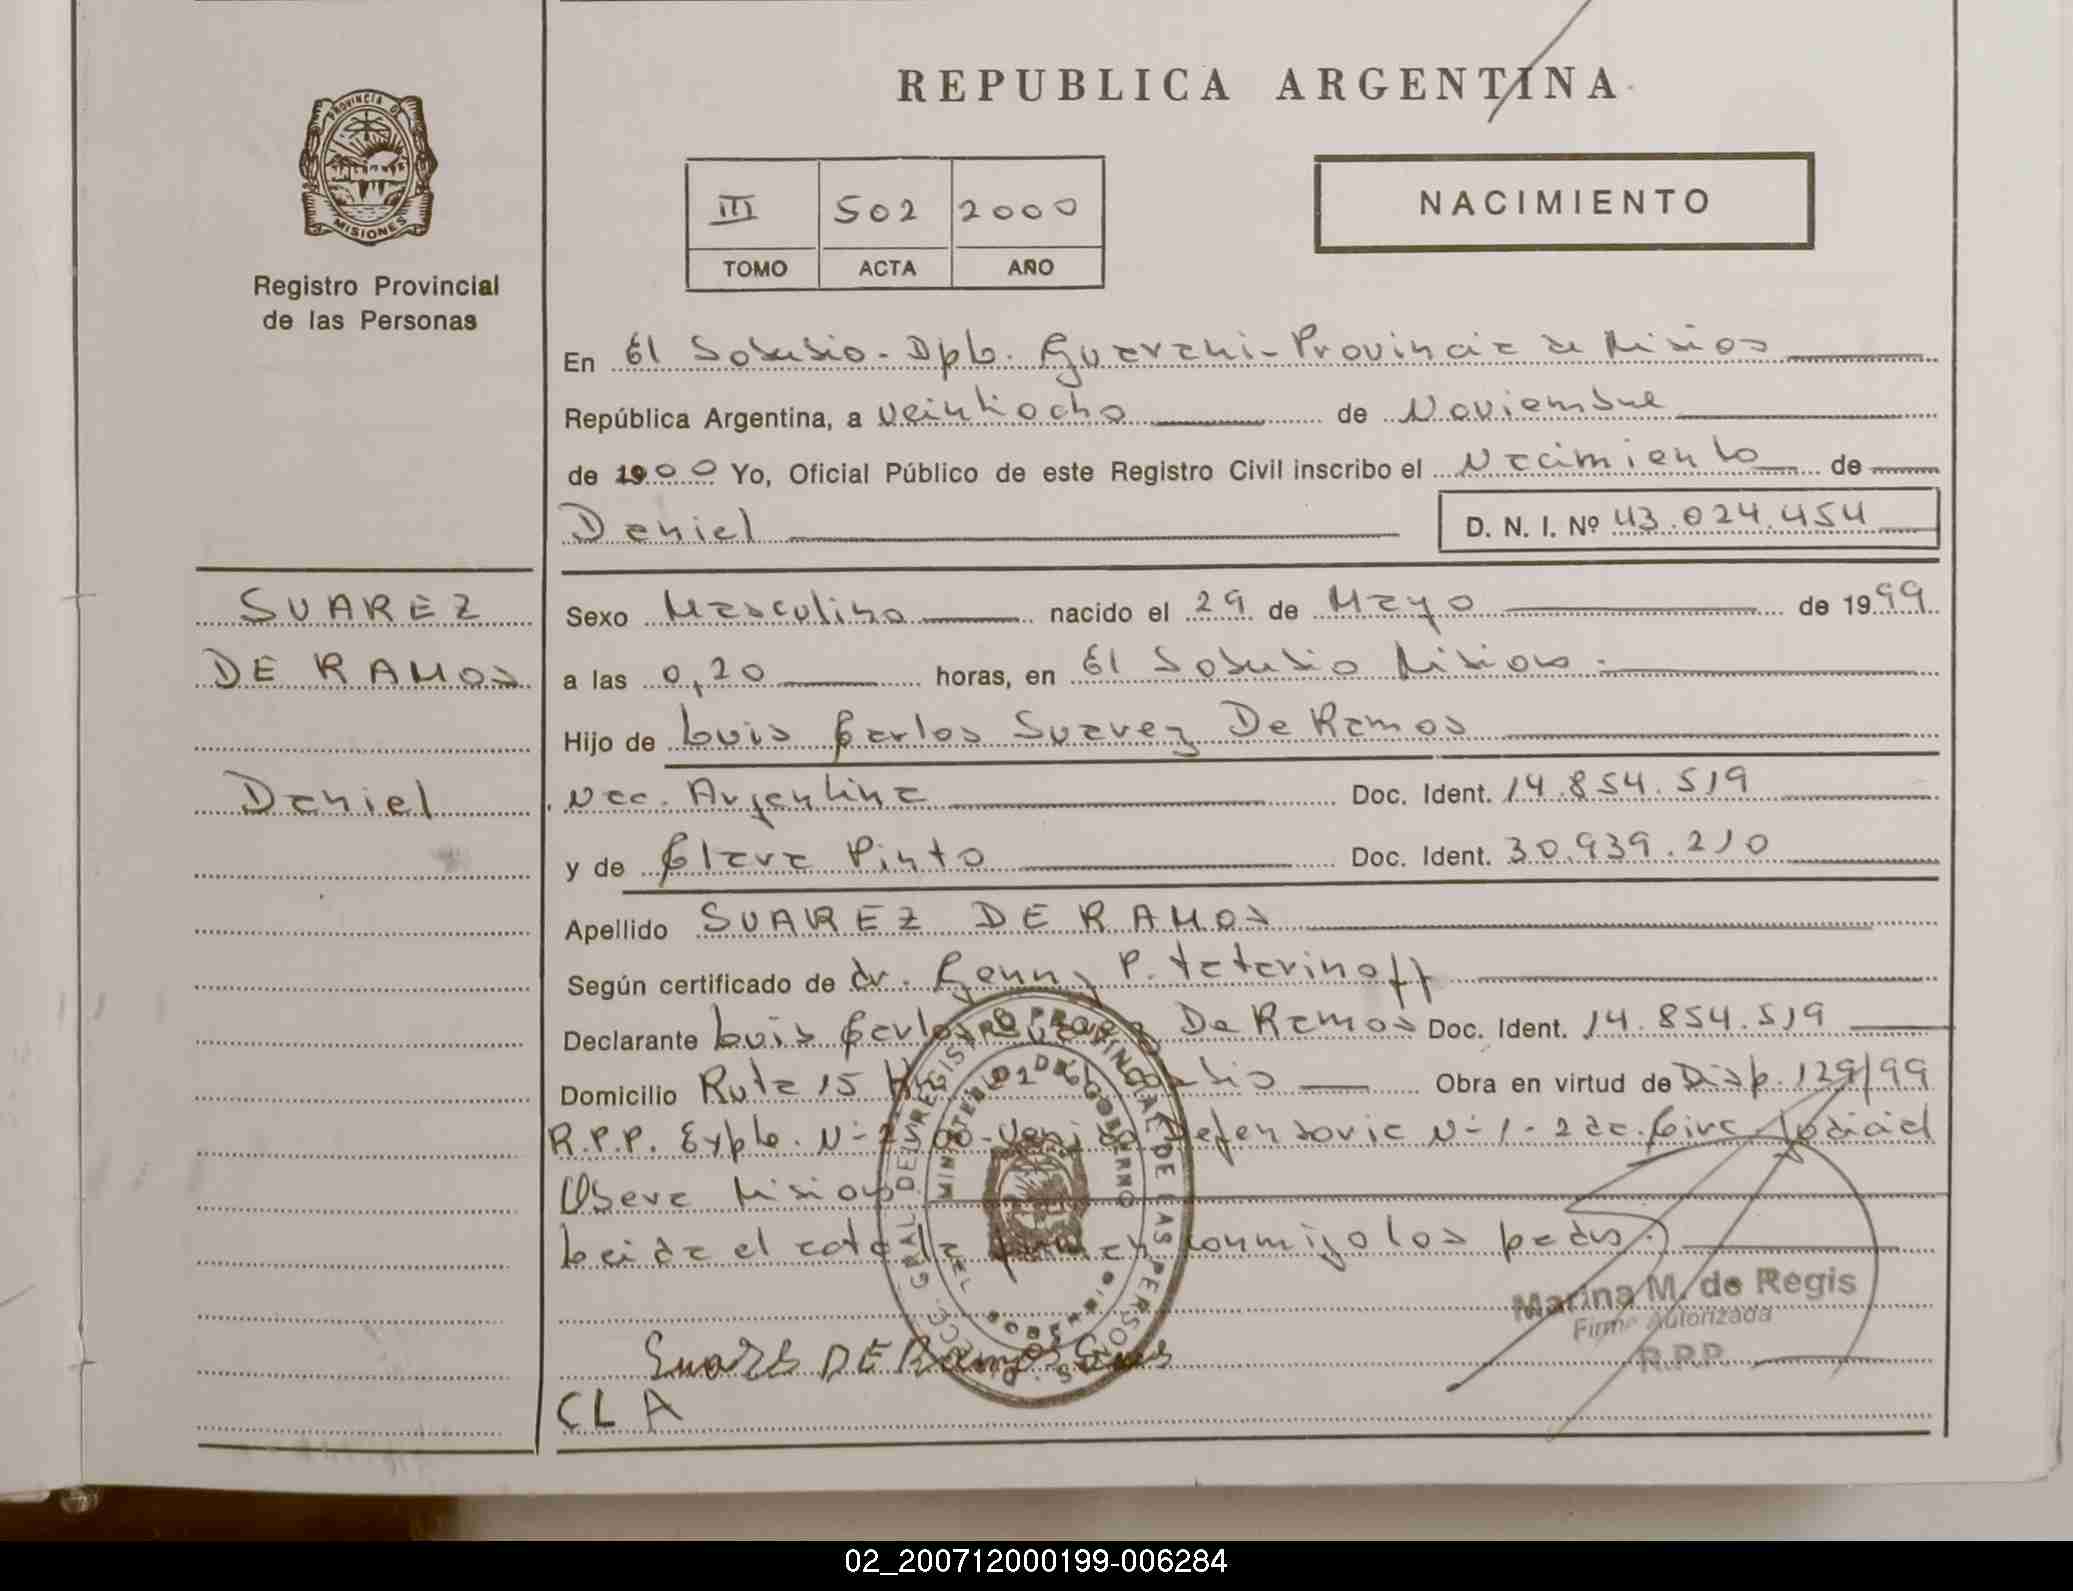 REPUBLICA ARGENTINA
PROVINCIA DE
MISIONES
Registro Provincial
de las Personas
III 502 2000
TOMO ACTA AÑO
NACIMIENTO
En El Soberbio - Dpto. Guarani - Provincia de Misiones
República Argentina, a veintiocho de Noviembre
de 1900 Yo, Oficial Público de este Registro Civil inscribo el Nacimiento de
Daniel D. N. I. Nº 43.024.454
SUAREZ
DE RAMOS
Daniel
Sexo Masculino nacido el 29 de Mayo de 1999
a las 0,20 horas, en El Soberbio Misiones
Hijo de Luis Carlos Suarez De Ramos
Nac. Argentina Doc. Ident. 14.854.519
y de Clara Pinto Doc. Ident. 30.939.210
Apellido SUAREZ DE RAMOS
Según certificado de dr. Genny P. Tatarinoff
Declarante Luis Carlos Suarez De Ramos Doc. Ident. 14.854.519
Domicilio Ruta 15 Obra en virtud de Disp. 129/99
R.P.P. Expte. Nº Defensoria Nº 1 - 2da. Circ. Judicial
Obera Misiones
Leida el acta la firman conmigo los padres
Suares DE Ramos Luis
CLA
DIRECC. GRAL. DEL REGISTRO PROVINCIAL DE LAS PERSONAS
MINISTERIO DE GOBIERNO
Marina M. de Regis
Firma Autorizada
R.P.P.
02_200712000199-006284